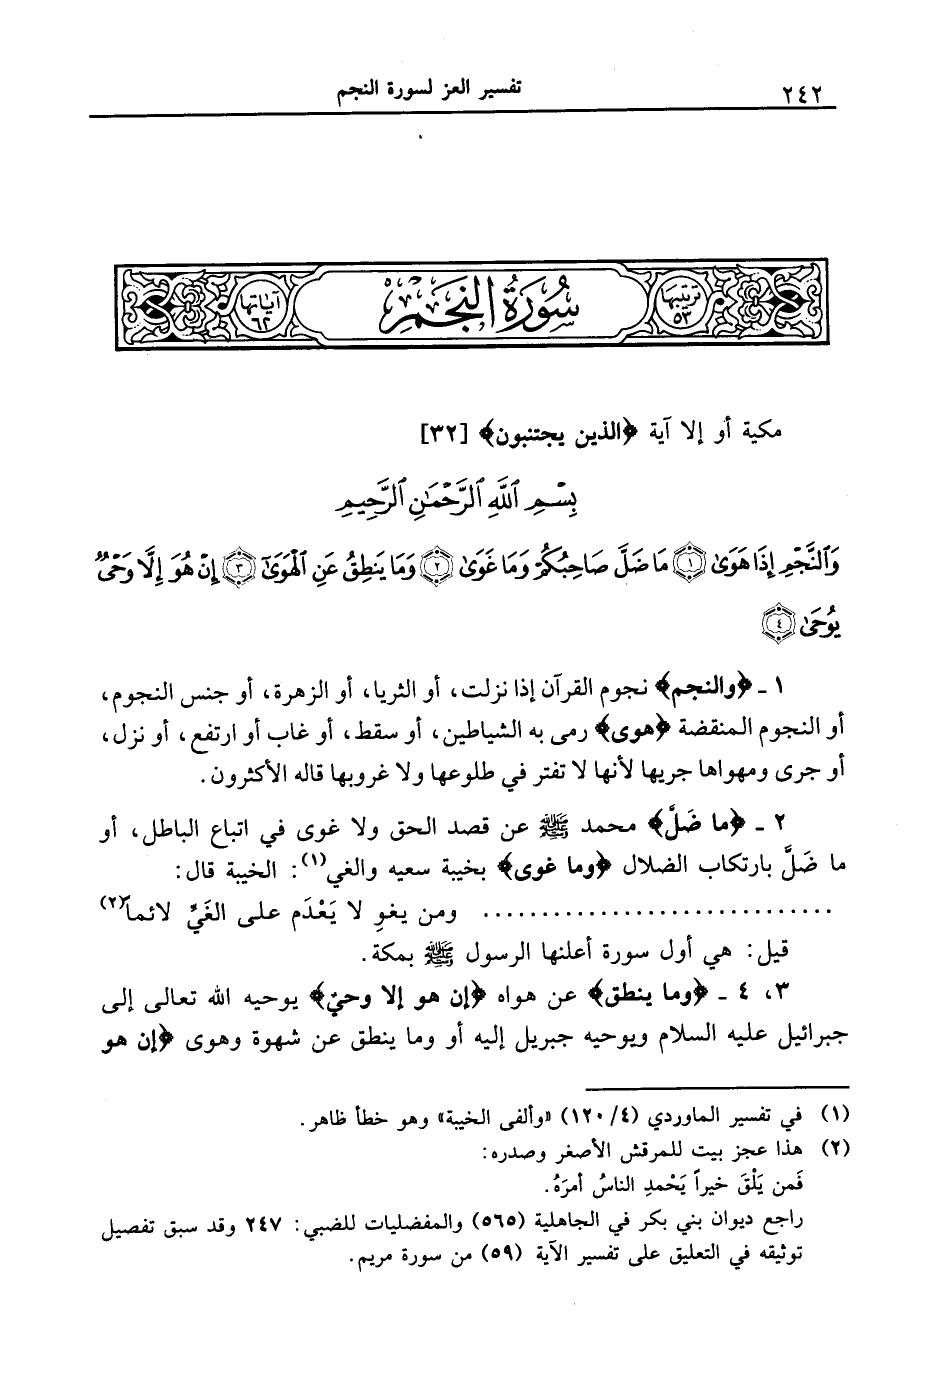 ٢٤٢ تفسير العز لسورة النجم
ترتيبها ٥٣ سُورَةُ النَّجْمِ آياتها ٦٢
مكية أو إلا آية ﴿الذين يجتنبون﴾ [٣٢]
بِسْمِ اللَّهِ الرَّحْمَٰنِ الرَّحِيمِ
وَالنَّجْمِ إِذَا هَوَىٰ ١ مَا ضَلَّ صَاحِبُكُمْ وَمَا غَوَىٰ ٢ وَمَا يَنطِقُ عَنِ الْهَوَىٰٓ ٣ إِنْ هُوَ إِلَّا وَحْىٌ
يُوحَىٰ ٤
١ ـ ﴿والنجم﴾ نجوم القرآن إذا نزلت، أو الثريا، أو الزهرة، أو جنس النجوم،
أو النجوم المنقضة ﴿هوى﴾ رمى به الشياطين، أو سقط، أو غاب أو ارتفع، أو نزل،
أو جرى ومهواها جريها لأنها لا تفتر في طلوعها ولا غروبها قاله الأكثرون.
٢ ـ ﴿ما ضَلَّ﴾ محمد ﷺ عن قصد الحق ولا غوى في اتباع الباطل، أو
ما ضَلَّ بارتكاب الضلال ﴿وما غوى﴾ بخيبة سعيه والغي(١): الخيبة قال:
.............................. ومن يغوِ لا يَعْدَم على الغَيِّ لائما(٢)
قيل: هي أول سورة أعلنها الرسول ﷺ بمكة.
٣، ٤ ـ ﴿وما ينطق﴾ عن هواه ﴿إن هو إلا وحيٌ﴾ يوحيه الله تعالى إلى
جبرائيل عليه السلام ويوحيه جبريل إليه أو وما ينطق عن شهوة وهوى ﴿إن هو
(١) في تفسير الماوردي (٤/ ١٢٠) «وألفى الخيبة» وهو خطأ ظاهر.
(٢) هذا عجز بيت للمرقش الأصغر وصدره:
فَمن يَلْقَ خيراً يَحْمدِ الناسُ أمرَهُ.
راجع ديوان بني بكر في الجاهلية (٥٦٥) والمفضليات للضبي: ٢٤٧ وقد سبق تفصيل
توثيقه في التعليق على تفسير الآية (٥٩) من سورة مريم.